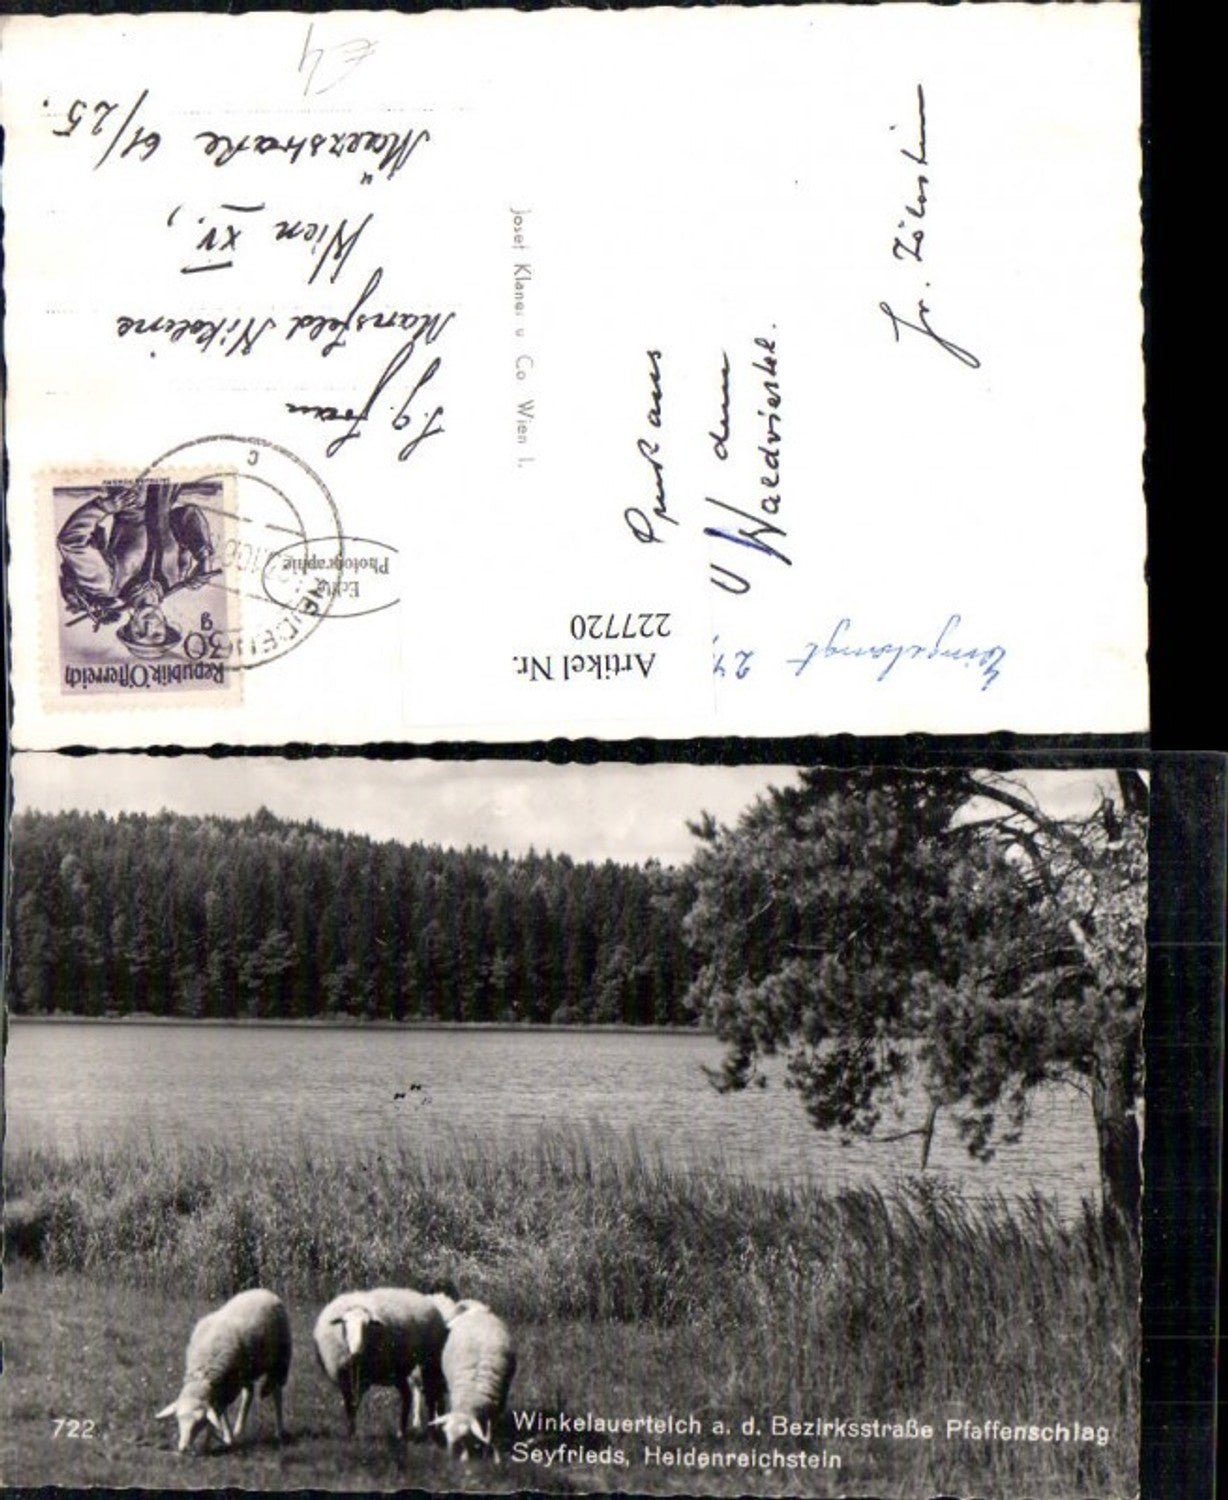 €4
S. g. Frau
Mansfeld Nikoline
Wien XV.,
Märzstraße 61/25.
Josef Klaner u Co Wien I.
Gruß aus
dem
Waldviertel.
Fr.
Eingelangt
Republik Österreich
30 g
Echte
Photographie
Artikel Nr.
227720
722
Winkelauerteich a. d. Bezirksstraße Pfaffenschlag
Seyfrieds, Heidenreichstein